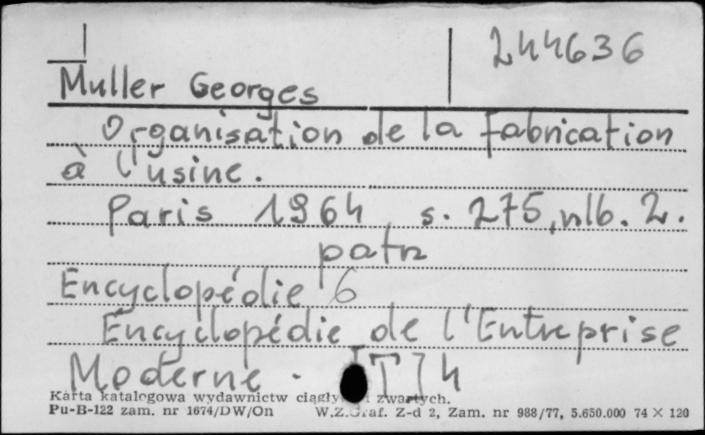 244636
Muller Georges
Organisation de la fabrication
à l'usine.
Paris 1964 s. 275, nlb. 2.
patrz
Encyclopédie 6
Encyclopédie de l'Entreprise
Moderne. [T] 4
Karta katalogowa wydawnictw ciągłych i zwartych.
Pu-B-122 zam. nr 1674/DW/On W.Z.Graf. Z-d 2, Zam. nr 988/77, 5.650.000 74 × 120